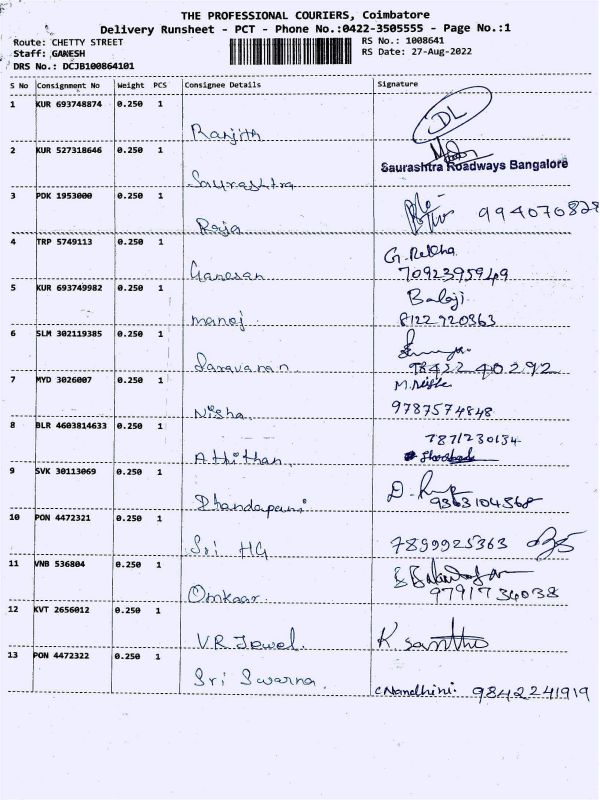 THE PROFESSIONAL COURIERS, Coimbatore
Delivery Runsheet - PCT - Phone No.:0422-3505555 - Page No.:1
Route: CHETTY STREET RS No.: 1008641
Staff: GANESH RS Date: 27-Aug-2022
DRS No.: DCJB100864101
S No Consignment No Weight PCS Consignee Details Signature
1 KUR 693748874 0.250 1
Ranjith DL
2 KUR 527318646 0.250 1
Saurashtra Saurashtra Roadways Bangalore
3 PDK 1953000 0.250 1
Raja 994070828
4 TRP 5749113 0.250 1
Ganesan G. Rekha
7092395949
5 KUR 693749982 0.250 1
manoj Balaji
8122920363
6 SLM 302119385 0.250 1
Saravanan 98422 40292
7 MYD 3026007 0.250 1
Nisha M.
9787574848
8 BLR 4603814633 0.250 1
Athithan 7871230134
9 SVK 30113069 0.250 1
Dhandapani D.
9363104568
10 PON 4472321 0.250 1
Sri HG 7899925363
11 VNB 536804 0.250 1
Omkaar 9791734038
12 KVT 2656012 0.250 1
V.R Jewel. K santho
13 PON 4472322 0.250 1
Sri Swarna. C.Nandhini. 9842241919